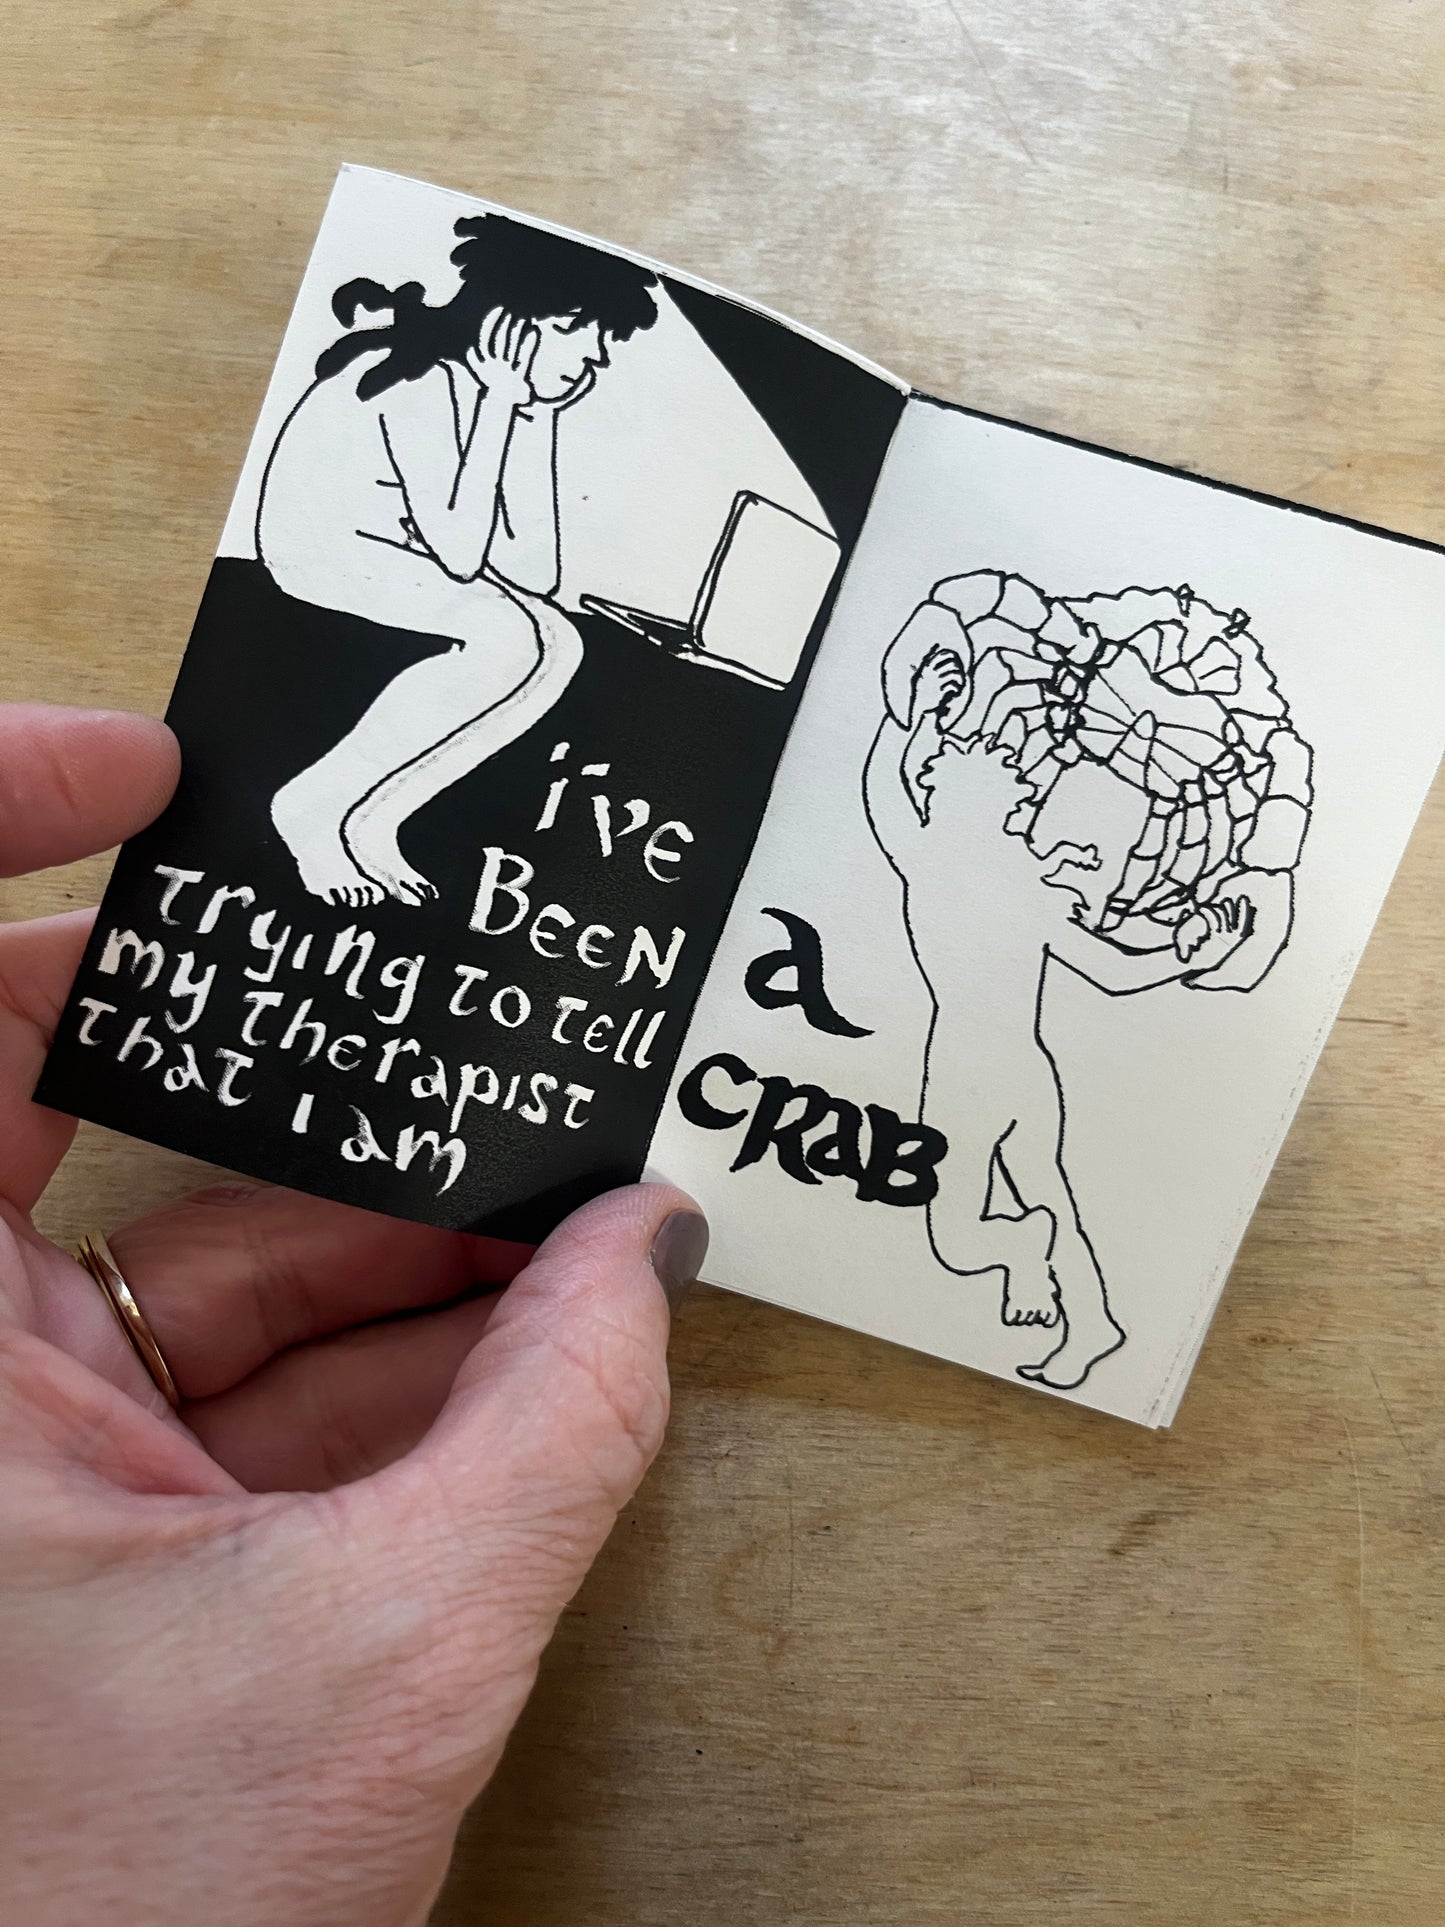 i've
Been
trying to tell
my therapist
that i am
a
CRaB